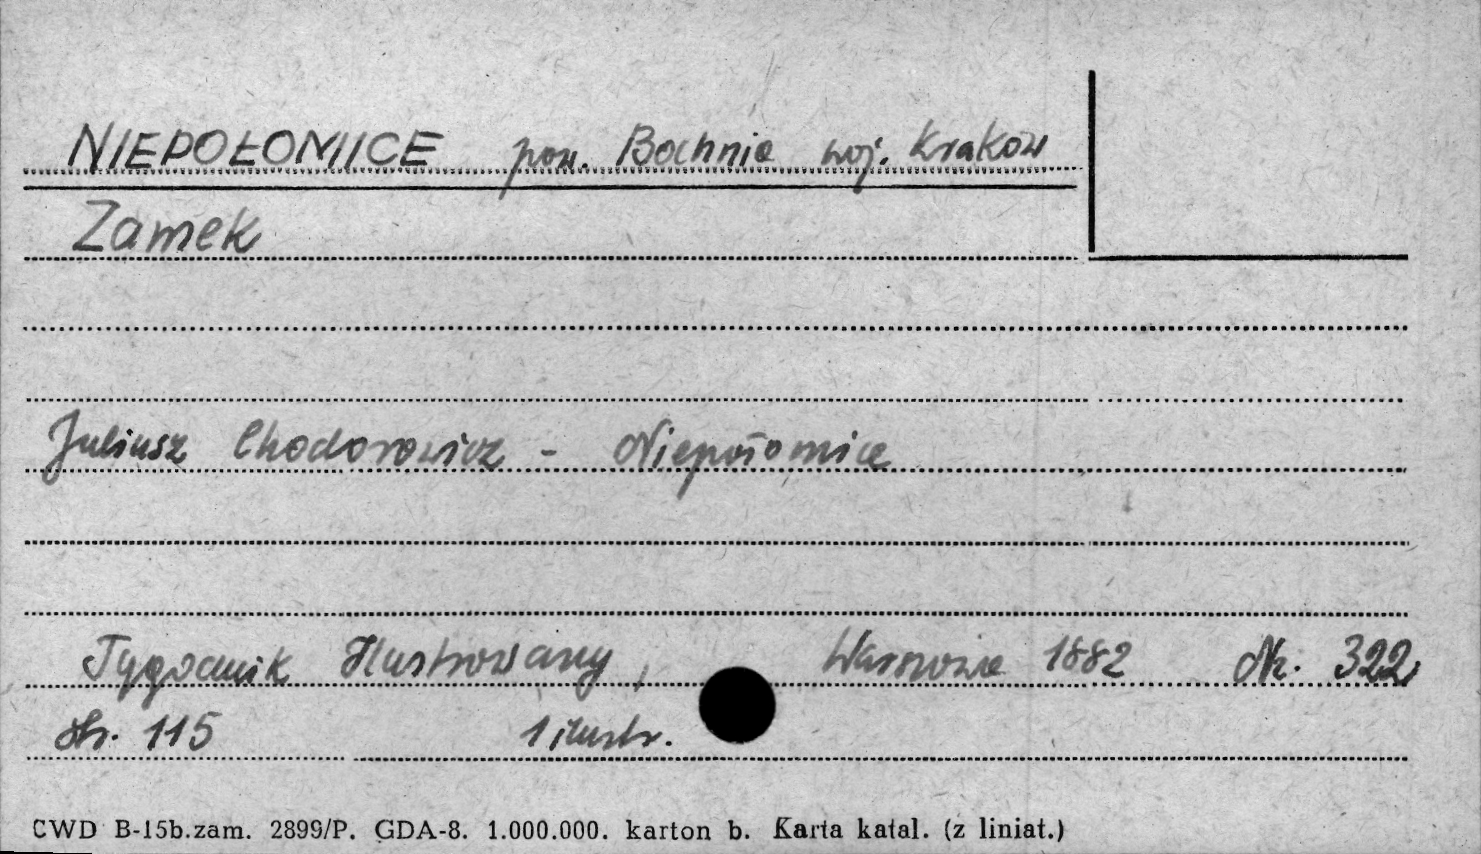 NIEPOŁOMICE pow. Bochnia woj. Kraków
Zamek
Juliusz Chodorowicz - Niepołomice
Tygodnik Ilustrowany, Warszawa 1882 Nr. 322,
str. 115 1 ilustr.
CWD B-15b.zam. 2899/P. GDA-8. 1.000.000. karton b. Karta katal. (z liniat.)